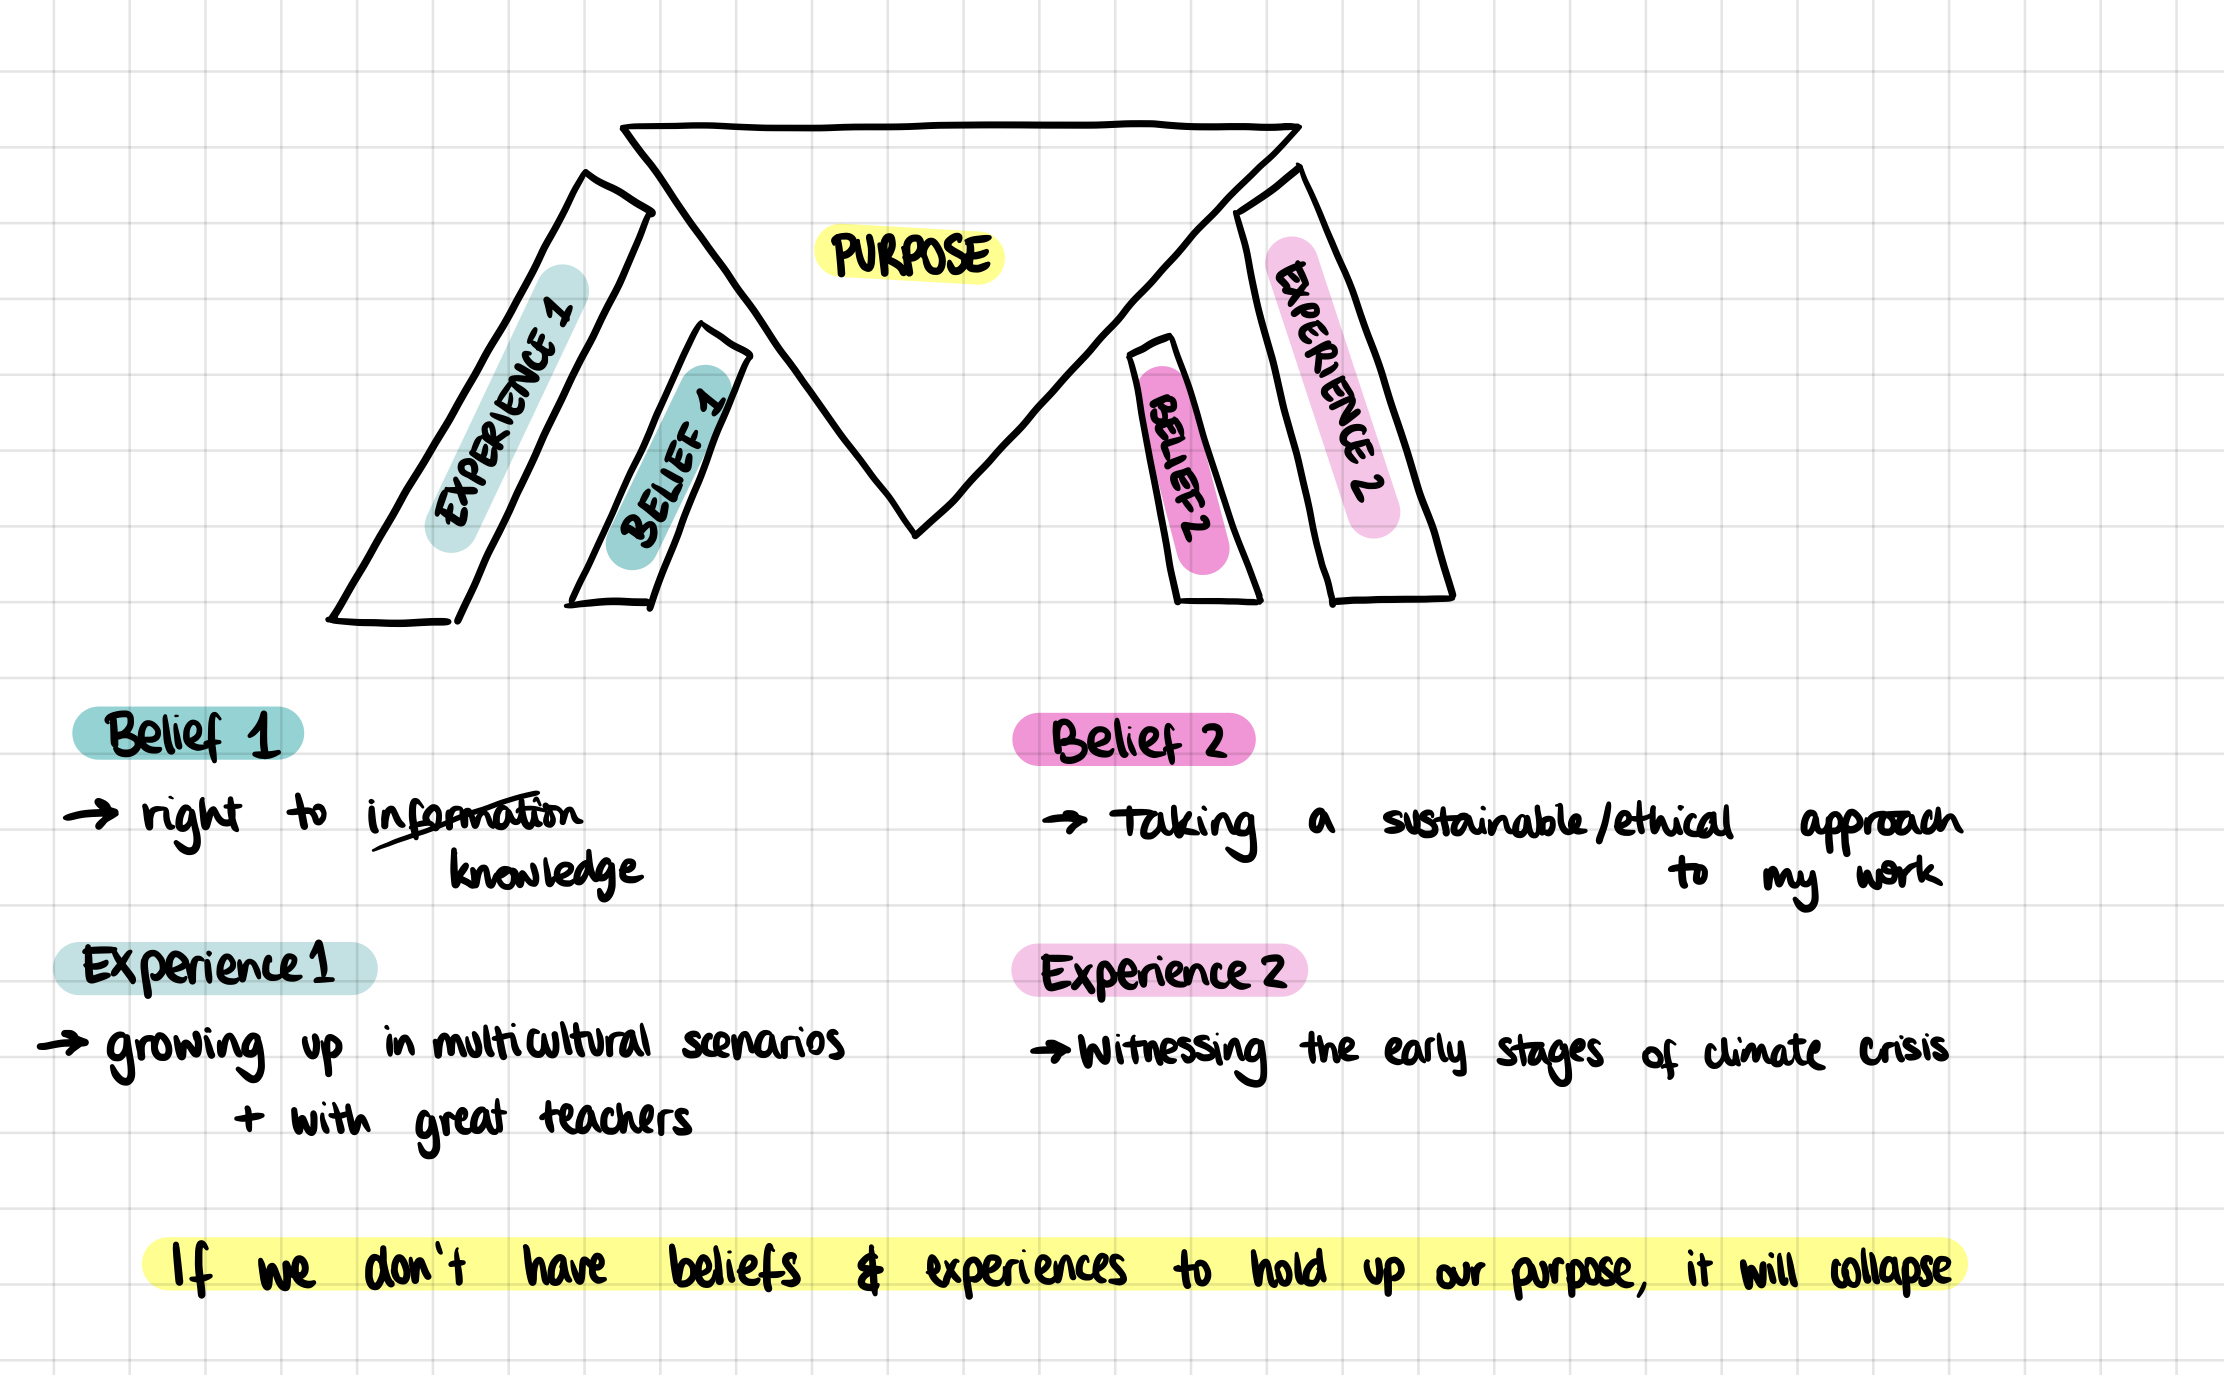 PURPOSE
EXPERIENCE 1
BELIEF 1
BELIEF 2
EXPERIENCE 2
Belief 1
→ right to information
knowledge
Experience 1
→ growing up in multicultural scenarios
+ with great teachers
Belief 2
→ Taking a sustainable/ethical approach
to my work
Experience 2
→ Witnessing the early stages of climate crisis
If we don't have beliefs & experiences to hold up our purpose, it will collapse